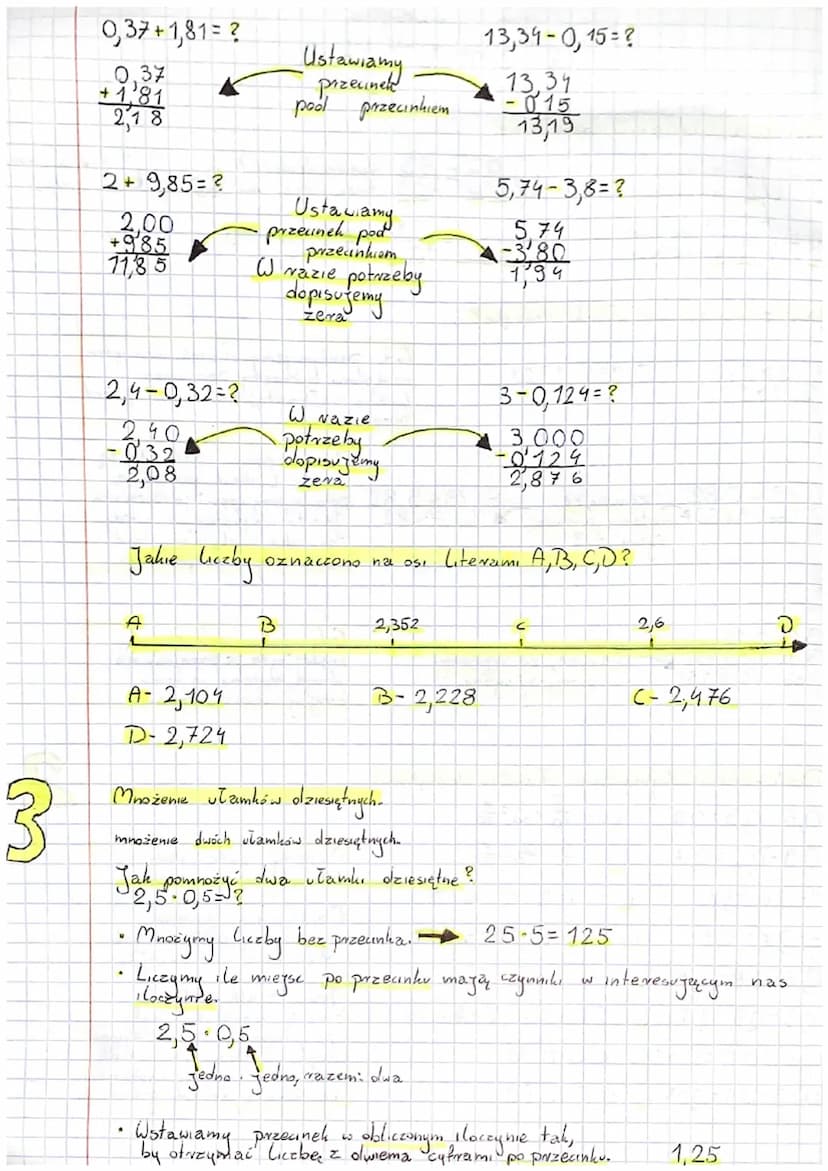 0,37+1,81=?
13,34-0,15=?
Ustawiamy
przecinek
pod przecinkiem
0,37
+1,81
2,18
13,34
-0,15
13,19
2+9,85=?
5,74-3,8=?
Ustawiamy
przecinek pod
przecinkiem
W razie potrzeby
dopisujemy
zera
2,00
+9,85
11,85
5,74
-3,80
1,94
2,4-0,32=?
3-0,124=?
W razie
potrzeby
dopisujemy
zera
2,40
-0,32
2,08
3,000
-0,124
2,876
Jakie liczby oznaczono na osi literami A,B,C,D?
A B 2,352 C 2,6 D
A- 2,104 B- 2,228 C- 2,476
D- 2,724
3
Mnożenie ułamków dziesiętnych.
mnożenie dwóch ułamków dziesiętnych.
Jak pomnożyć dwa ułamki dziesiętne?
2,5·0,5=?
• Mnożymy liczby bez przecinka. → 25·5=125
• Liczymy ile miejsc po przecinku mają czynniki w interesującym nas
iloczynie.
2,5·0,5
jedno. jedno, razem: dwa
• Wstawiamy przecinek w obliczonym iloczynie tak,
by otrzymać liczbę z dwiema cyframi po przecinku. 1,25